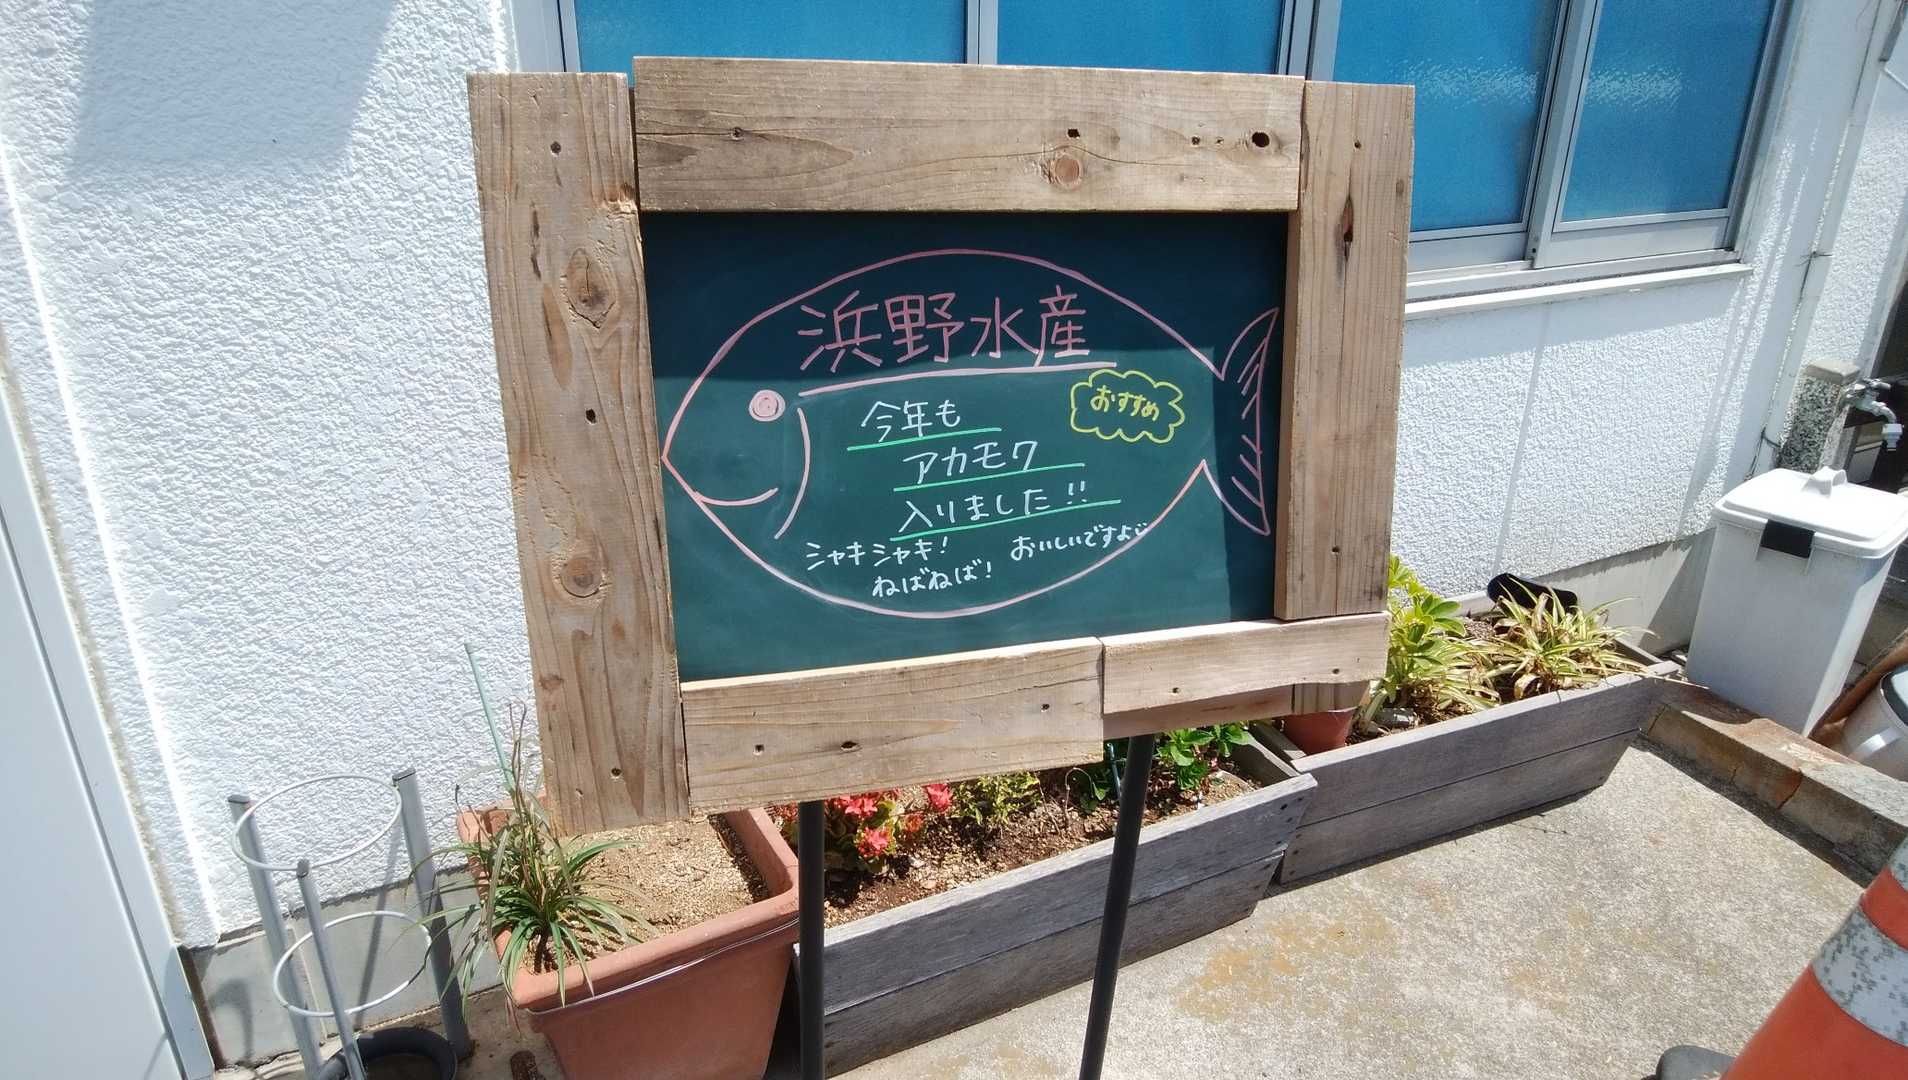 浜野水産
おすすめ
今年も
アカモク
入りました!!
シャキシャキ!
ねばねば!
おいしいですよ